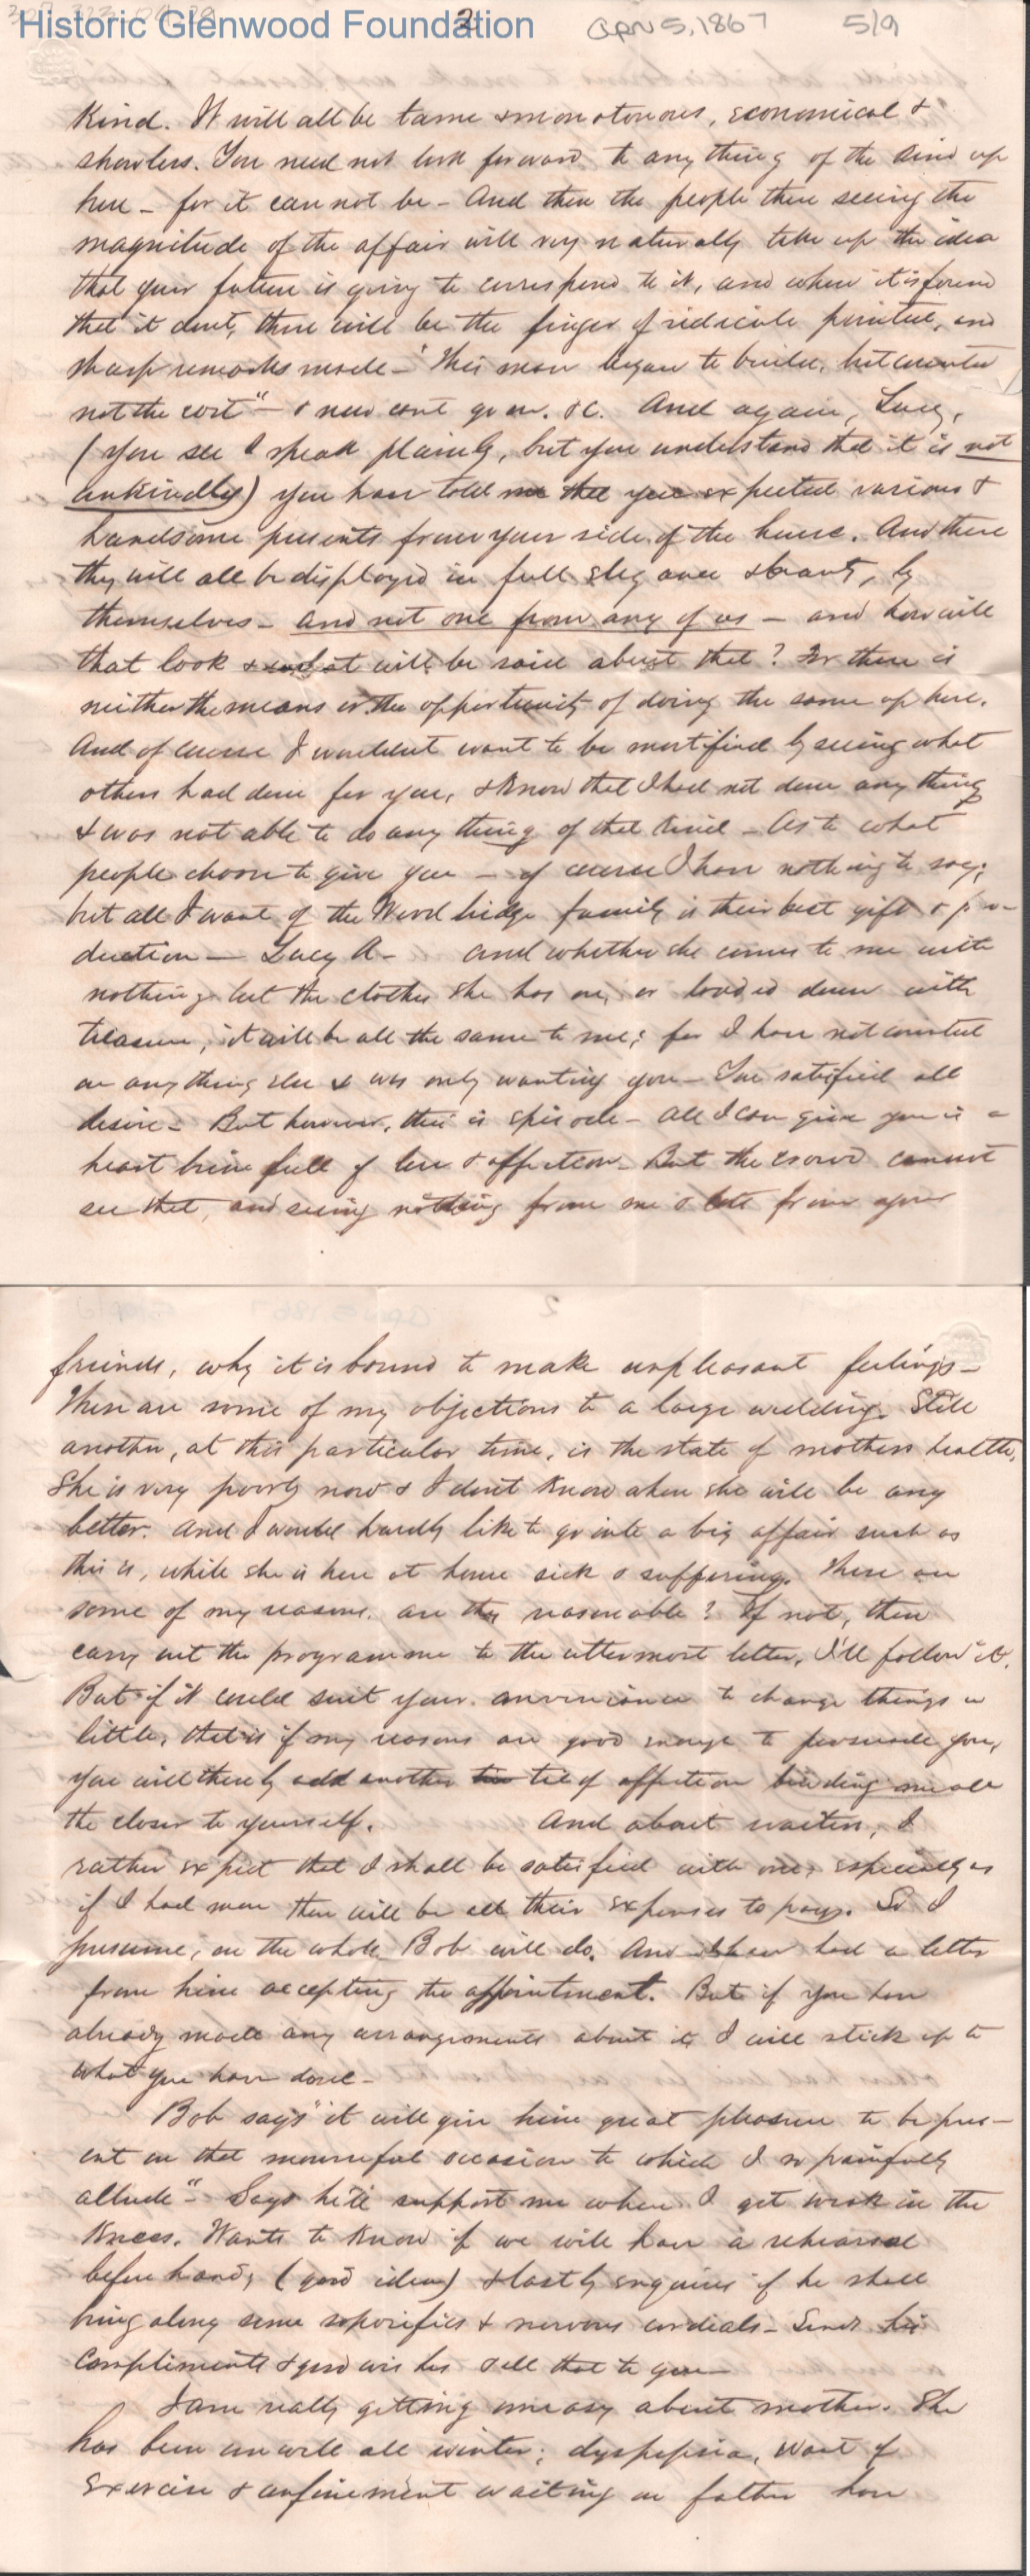 Historic Glenwood Foundation
2
Apr 5, 1867
5/9
Kind. It will all be tame & monotonous, economical &
showless. You need not look forward to any thing of the kind up
here – for it can not be – And then the people there seeing the
magnitude of the affair will very naturally take up the idea
that your future is going to correspond to it, and when it is found
that it dont, there will be the finger of ridicule pointed, and
sharp remarks made – "This man began to build, but counted
not the cost" – & now cant go on. &c. And again, Lucy,
(you see I speak plainly, but you understand that it is not
unkindly) you have told me that you expected various &
handsome presents from your side of the house. And there
they will all be displayed in full elegance & beauty, by
themselves – and not one from any of us – and how will
that look & what will be said about that? For there is
neither the means or the opportunity of doing the same up here.
And of course I wouldent want to be mortified by seeing what
others had done for you, & know that I had not done any thing
& was not able to do any thing of that kind – As to what
people choose to give you – of course I have nothing to say;
but all I want of the Woodbridge family is their best gift & pro-
duction – Lucy A – and whether she comes to me with
nothing but the clothes she has on, or loaded down with
treasure, it will be all the same to me; for I have not counted
on any thing else & was only wanting you – I'm satisfied all
desire – But however, this is episode – All I can give you is a
heart brim full of love & affection – But the crowd cannot
see that, and seeing nothing from me & lots from your
friends, why it is bound to make unpleasant feelings –
These are some of my objections to a large wedding. Still
another, at this particular time, is the state of mothers health,
She is very poorly now & I dont know when she will be any
better. And I would hardly like to go into a big affair such as
this is, while she is here at home sick & suffering. These are
some of my reasons. are they reasonable? If not, then
carry out the programme to the uttermost letter, I'll follow it.
But if it could suit your convenience to change things a
little, that is if my reasons are good enough to persuade you,
you will thereby add another tie of affection binding me all
the closer to yourself. And about waiters, I
rather expect that I shall be satisfied with one, especially as
if I had more there will be all their expenses to pay. So I
presume, on the whole Bob will do. And I have had a letter
from him accepting the appointment. But if you have
already made any arrangements about it I will stick up to
what you have done –
Bob says "it will give him great pleasure to be pres-
ent on that mournful occasion to which I so painfully
allude" – Says he'll support me when I get weak in the
knees. Wants to know if we will have a rehearsal
before hand, (good idea) & lastly enquires if he shall
bring along some soporifics & nervous cordials – Sends his
compliments & good wishes & all that to you –
I am really getting uneasy about mother. She
has been unwell all winter; dyspepsia, want of
exercise & confinement waiting on father have